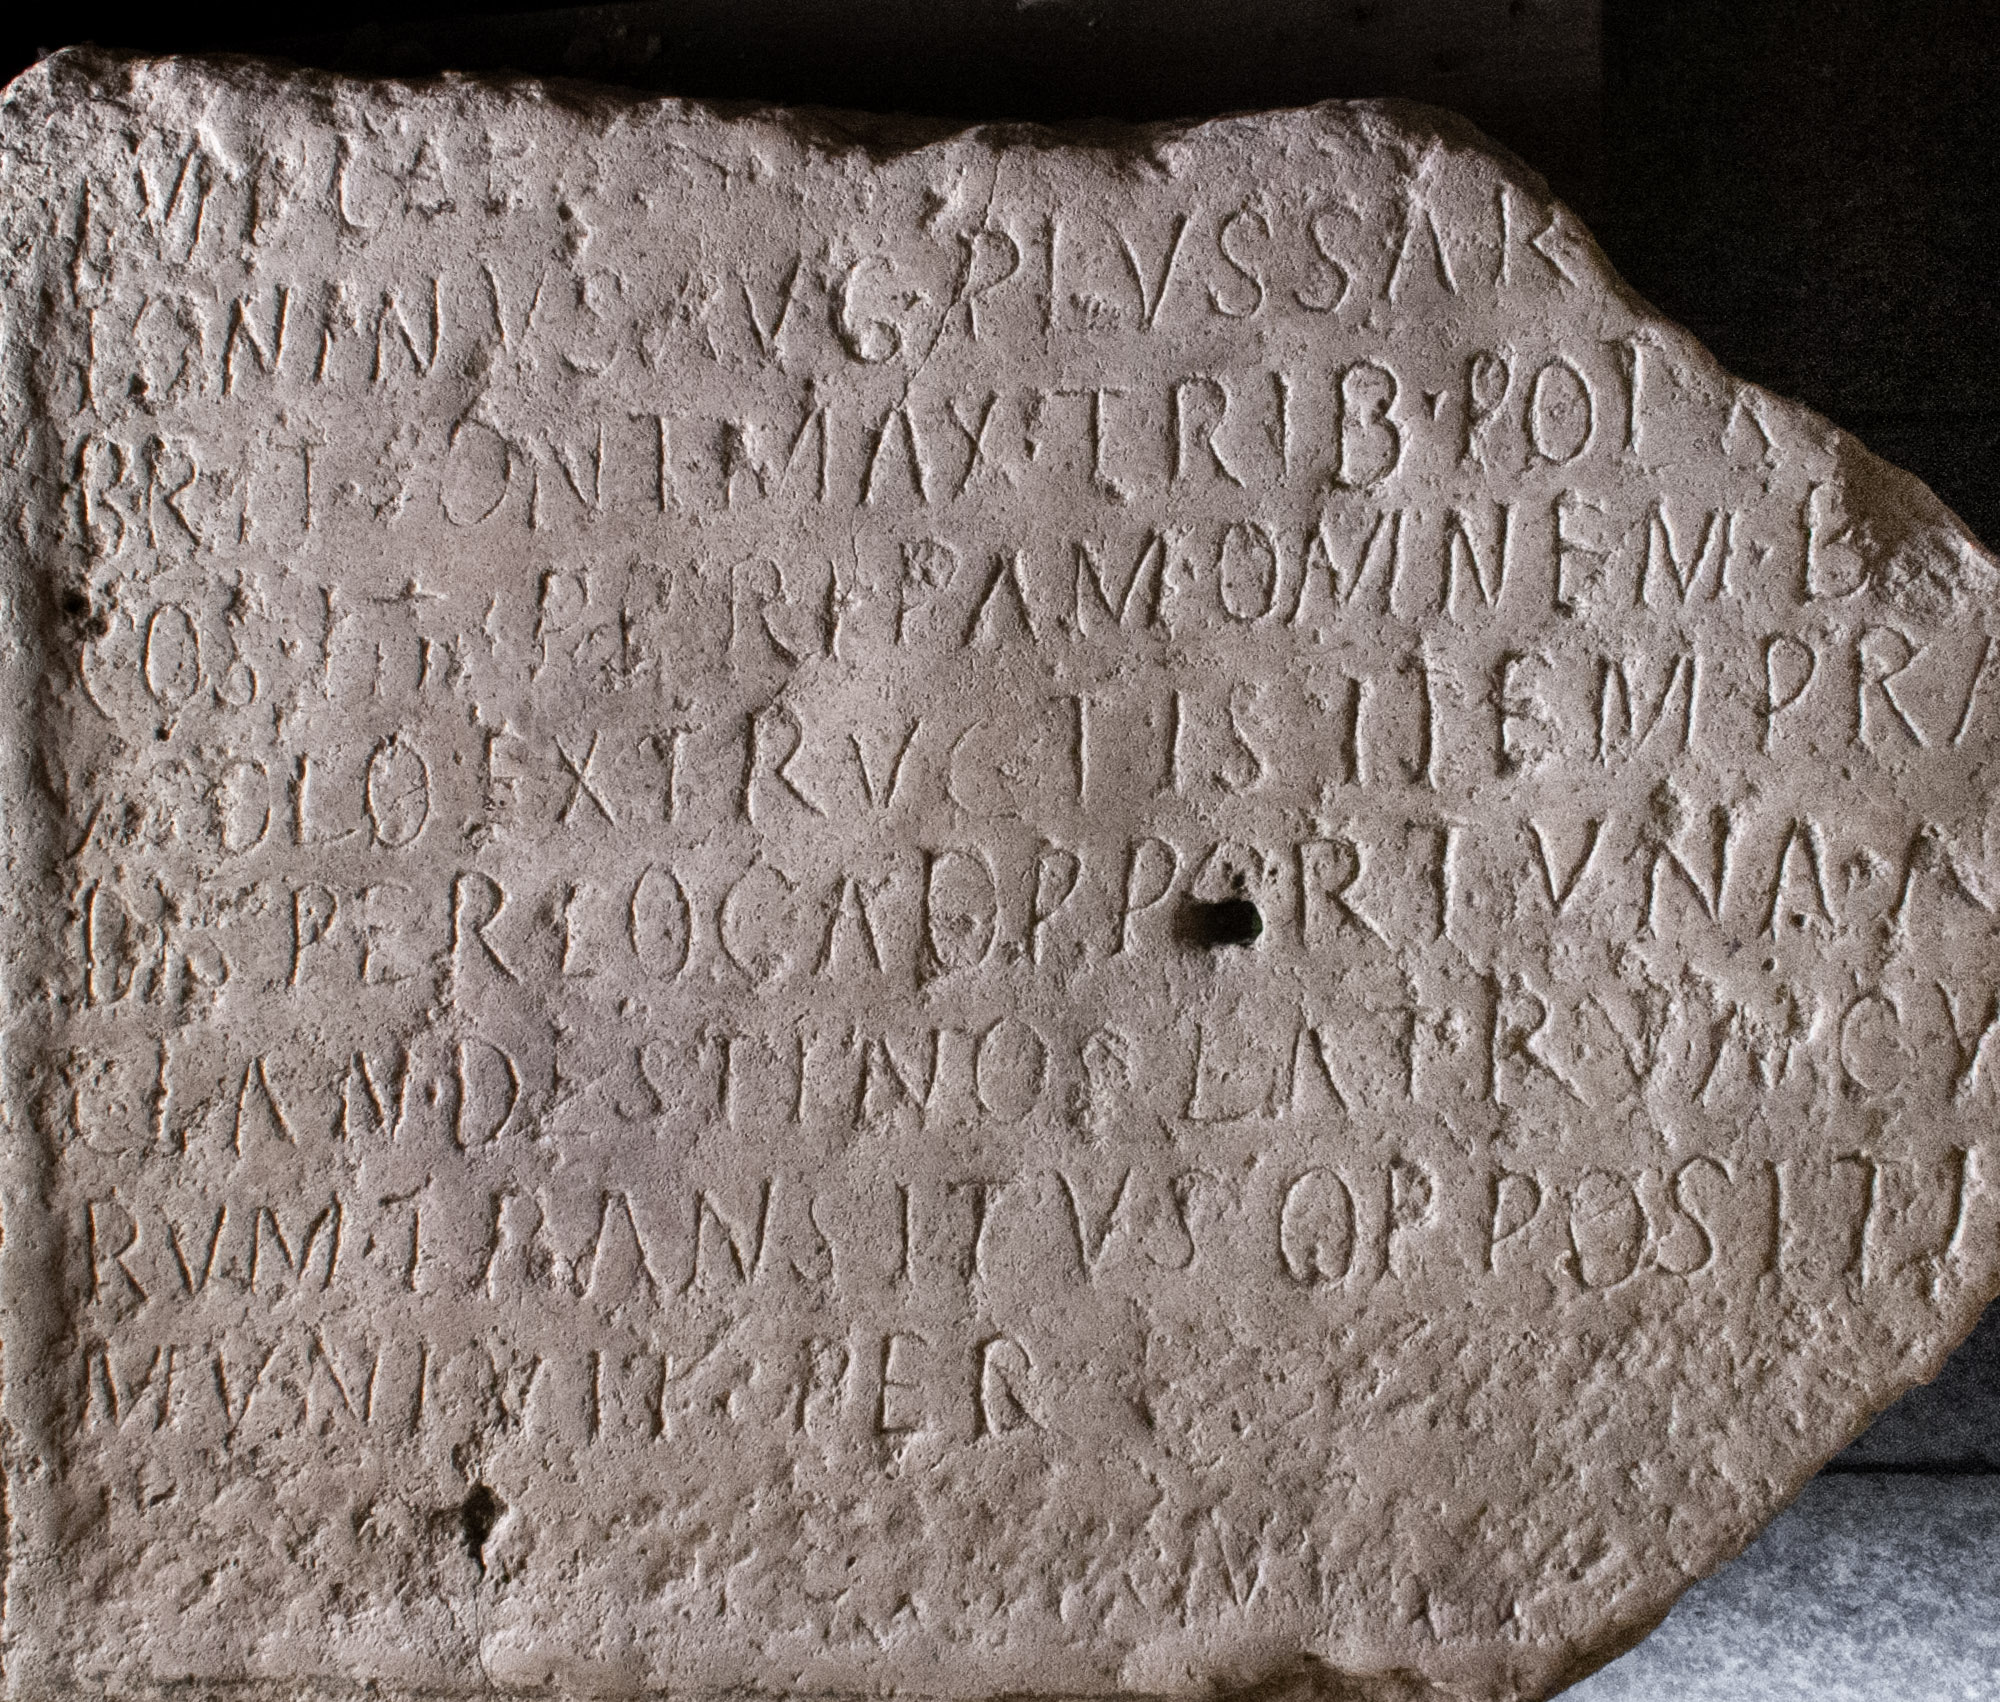 IMP CAE
TONINVS AVG PIVS SAR
BRIT · PONT MAX · TRIB · POT X
COS · IIII P P RIPAM OMNEM · B
A SOLO EXTRVCTIS ITEM PRA
DIS PER LOCA OPPORTVNA A
CLANDESTINOS LATRVNCV
RVM · TRANSITVS OPPOSITI
MVNIVIT PER